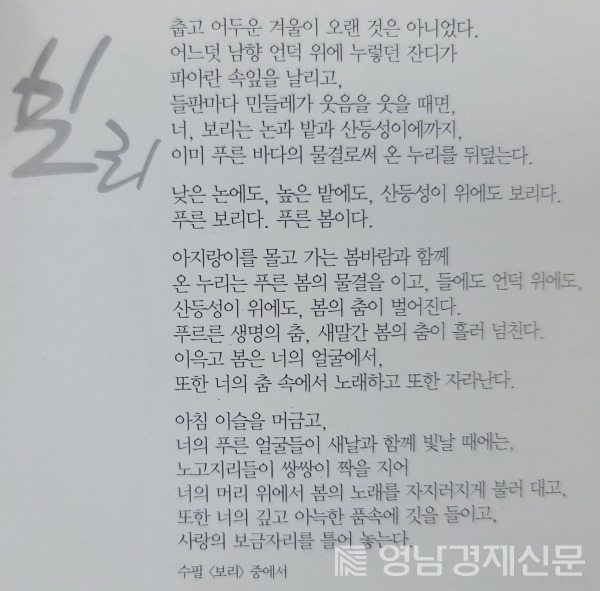 보리
춥고 어두운 겨울이 오랜 것은 아니었다.
어느덧 남향 언덕 위에 누렇던 잔디가
파아란 속잎을 날리고,
들판마다 민들레가 웃음을 웃을 때면,
너, 보리는 논과 밭과 산등성이에까지,
이미 푸른 바다의 물결로써 온 누리를 뒤덮는다.
낮은 논에도, 높은 밭에도, 산등성이 위에도 보리다.
푸른 보리다. 푸른 봄이다.
아지랑이를 몰고 가는 봄바람과 함께
온 누리는 푸른 봄의 물결을 이고, 들에도 언덕 위에도,
산등성이 위에도, 봄의 춤이 벌어진다.
푸르른 생명의 춤, 새말간 봄의 춤이 흘러 넘친다.
이윽고 봄은 너의 얼굴에서,
또한 너의 춤 속에서 노래하고 또한 자라난다.
아침 이슬을 머금고,
너의 푸른 얼굴들이 새날과 함께 빛날 때에는,
노고지리들이 쌍쌍이 짝을 지어
너의 머리 위에서 봄의 노래를 자지러지게 불러 대고,
또한 너의 깊고 아늑한 품속에 깃을 들이고,
사랑의 보금자리를 틀어 놓는다
수필 〈보리〉 중에서
영남경제신문